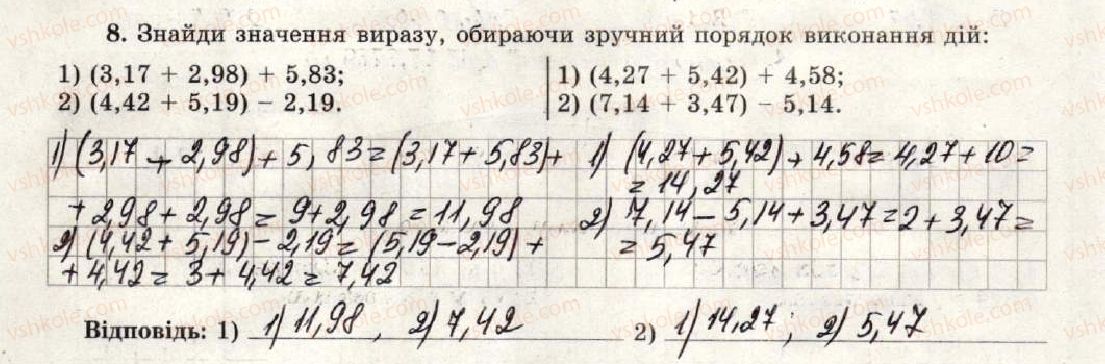 8. Знайди значення виразу, обираючи зручний порядок виконання дій:
1) (3,17 + 2,98) + 5,83;
2) (4,42 + 5,19) − 2,19.
1) (4,27 + 5,42) + 4,58;
2) (7,14 + 3,47) − 5,14.
1) (3,17 + 2,98) + 5,83 = (3,17 + 5,83) +
+ 2,98 + 2,98 = 9 + 2,98 = 11,98
2) (4,42 + 5,19) − 2,19 = (5,19 − 2,19) +
+ 4,42 = 3 + 4,42 = 7,42
1) (4,27 + 5,42) + 4,58 = 4,27 + 10 =
= 14,27
2) 7,14 − 5,14 + 3,47 = 2 + 3,47 =
= 5,47
Відповідь: 1) 1) 11,98, 2) 7,42 2) 1) 14,27; 2) 5,47